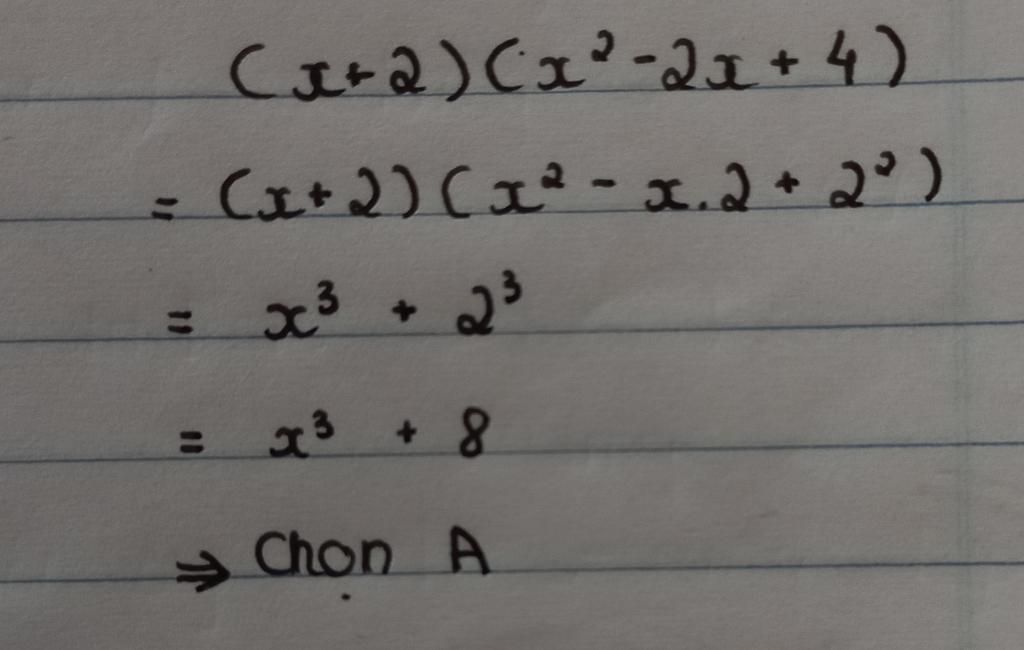 (x+2)(x² - 2x + 4)
= (x+2)(x² - x.2 + 2²)
= x³ + 2³
= x³ + 8
⇒ Chọn A